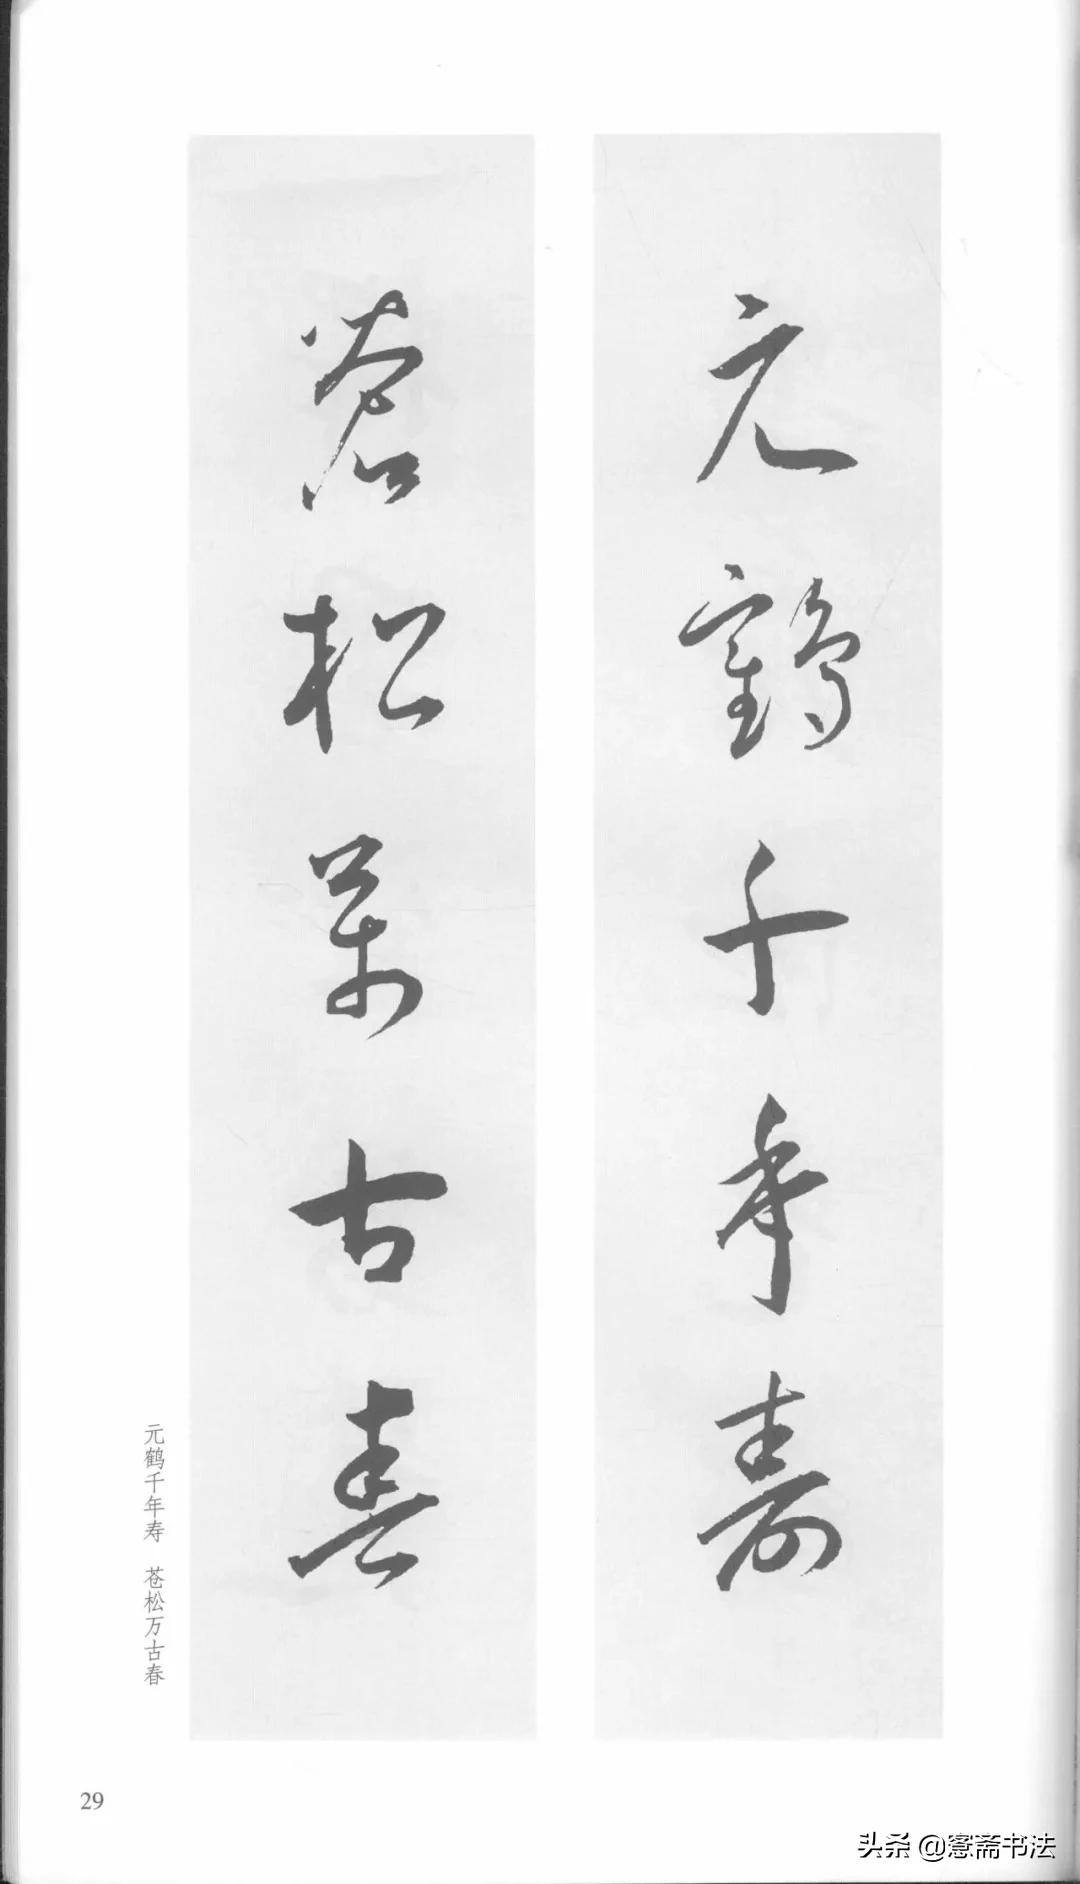 元鶴千年壽
蒼松萬古春
元鹤千年寿 苍松万古春
29
头条 @寋斋书法